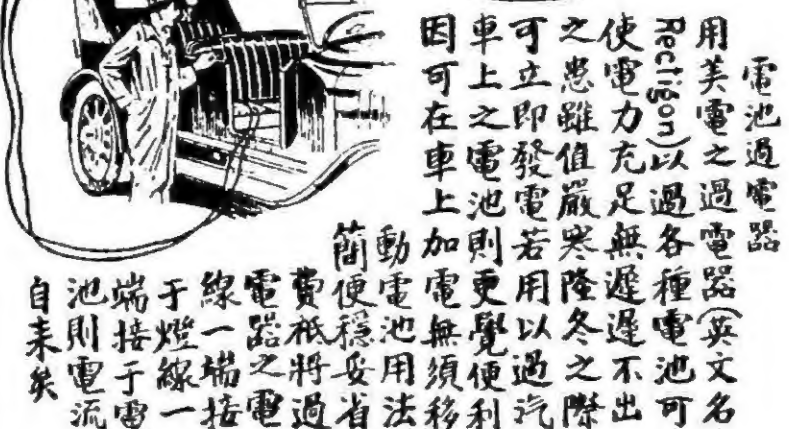 電池過電器
用美電之過電器(英文名
Rectigon)以過各種電池可
使電力充足無遲遲不出
之患雖值嚴寒隆冬之際
可立即發電若用以過汽
車上之電池則更覺便利
因可在車上加電無須移
動電池用法
簡便穩妥省
費祇將過
電器之電
線一端接
于燈線一
端接于電
池則電流
自来矣